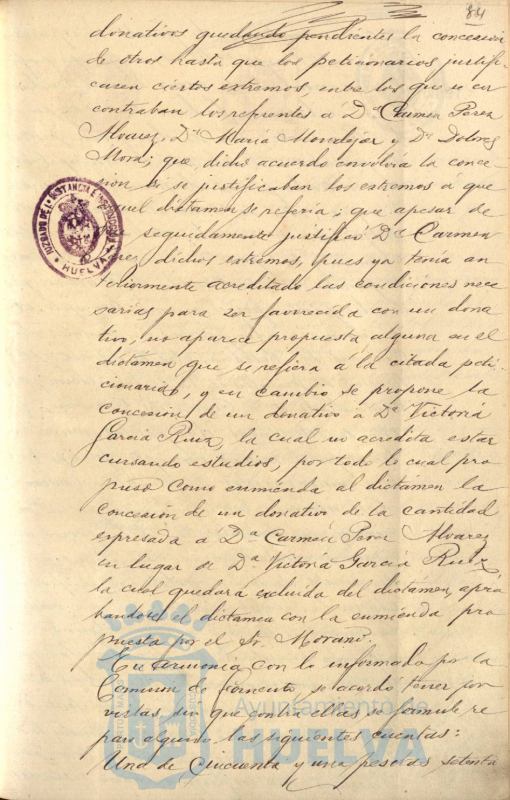 84
donativos quedando pendientes la concesión
de otros hasta que los peticionarios justifi-
casen ciertos extremos, entre los que se en
contraban los referentes á Dª Carmen Perez
Alvarez, Dª Maria Moralejar y Dª Dolores
Mora; que dicho acuerdo envolvia la conce-
sion si se justificaban los extremos á que
aquel dictamen se referia; que apesar de
que seguidamente justificó Dª Carmen
Perez dichos extremos, pues ya tenia an
teriormente acreditado las condiciones nece
sarias para ser favorecida con un dona
tivo, no aparece propuesta alguna en el
dictámen que se refiera á la citada peti-
cionaria, y en cambio se propone la
concesión de un donativo á Dª Victoria
Garcia Ruiz, la cual no acredita estar
cursando estudios, por todo lo cual pro
puso como enmienda al dictamen la
concesión de un donativo de la cantidad
expresada á Dª Carmen Perez Alvarez
en lugar de Dª Victoria Garcia Ruiz
la cual quedara excluida del dictamen, apro
bandose el dictamen con la enmienda pro
puesta por el Sr. Morano.
En armonia con lo informado por la
Comision de Fomento, se acordó tener por
vistas, sin que contra ellas se formule re
paro alguno las siguientes cuentas:
Una de Cincuenta y una pesetas setenta
JUZGADO DE 1ª INSTANCIA E INSTRUCCION
HUELVA
Ayuntamiento de
HUELVA